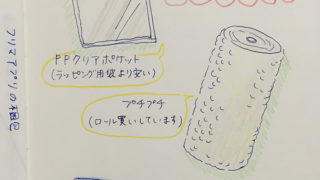 PPクリアポケット
(ラッピング用袋より安い)
プチプチ
(ロール買いしています)
フリマアプリの梱包